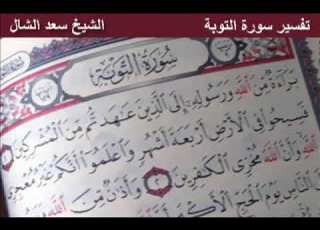 تفسير سورة التوبة الشيخ سعد الشال
سُورَةُ التَّوْبَةِ
بَرَآءَةٌ مِّنَ ٱللَّهِ وَرَسُولِهِۦٓ إِلَى ٱلَّذِينَ عَٰهَدتُّم مِّنَ ٱلْمُشْرِكِينَ ١
فَسِيحُوا۟ فِى ٱلْأَرْضِ أَرْبَعَةَ أَشْهُرٍ وَٱعْلَمُوٓا۟ أَنَّكُمْ غَيْرُ مُعْجِزِى
ٱللَّهِ وَأَنَّ ٱللَّهَ مُخْزِى ٱلْكَٰفِرِينَ ٢ وَأَذَٰنٌ مِّنَ ٱللَّهِ
ٱلنَّاسِ يَوْمَ ٱلْحَجِّ ٱلْأَكْبَرِ